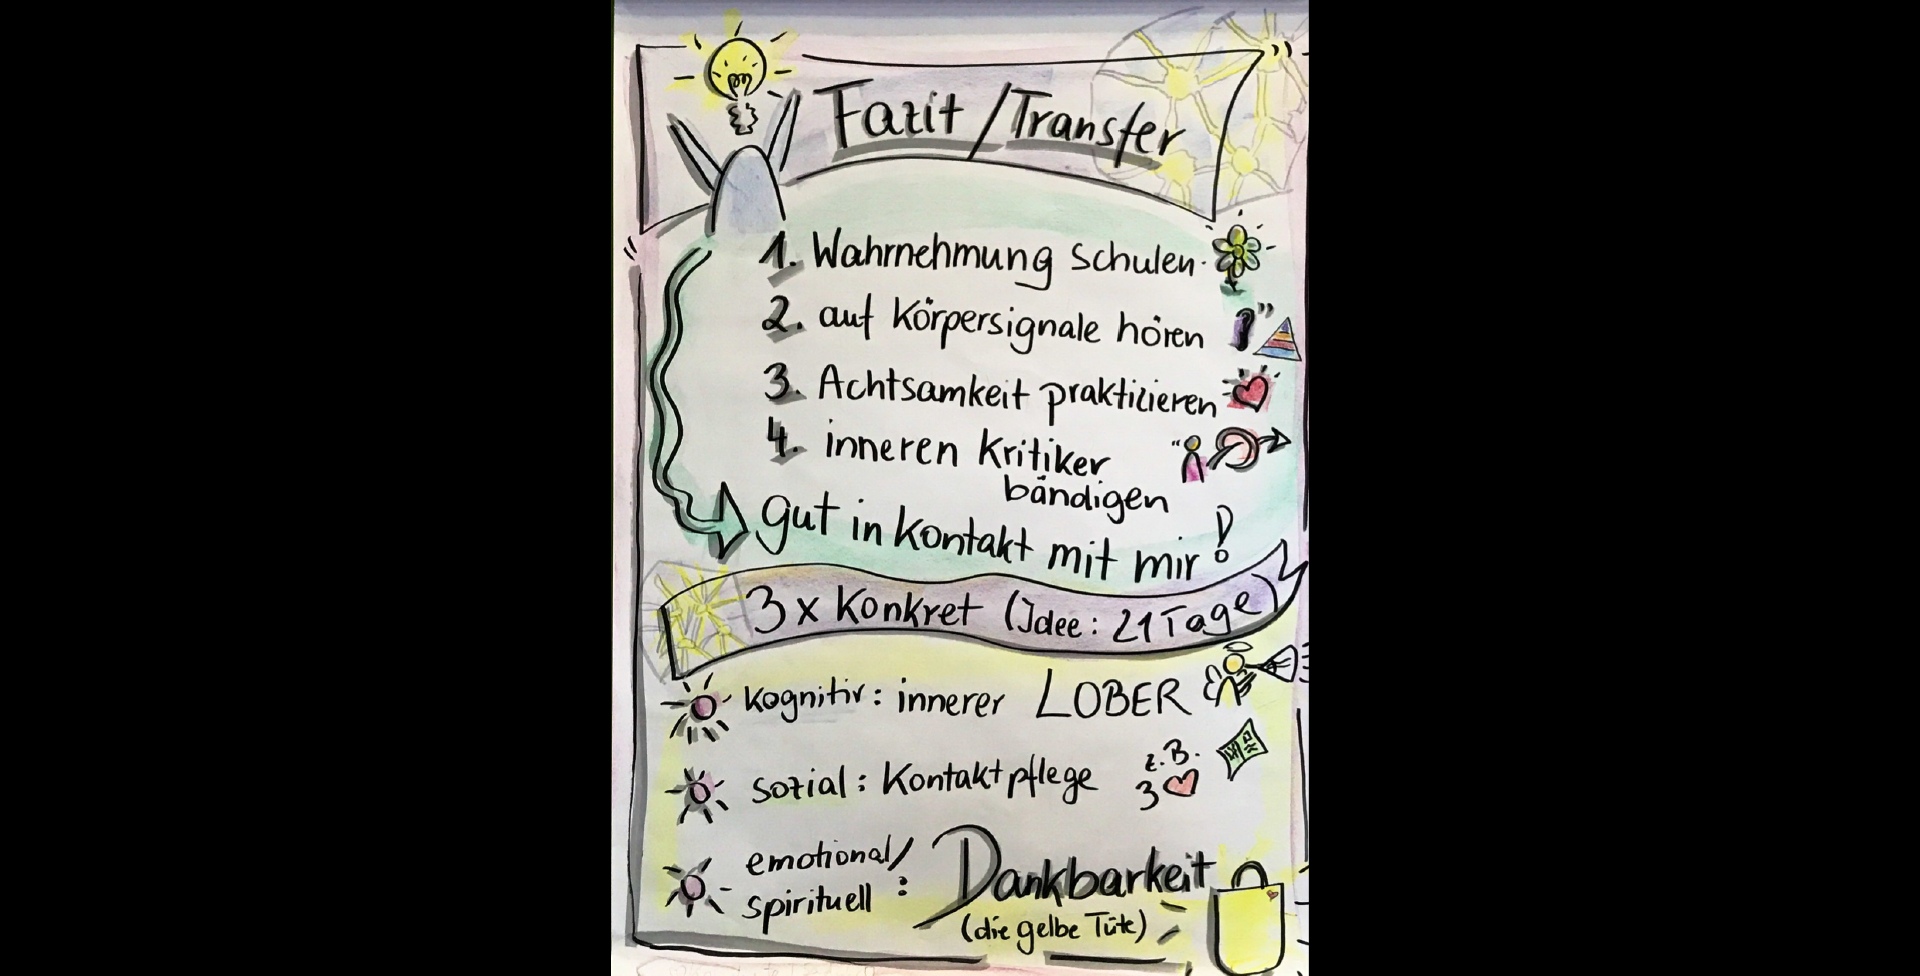 Fazit/Transfer
1. Wahrnehmung schulen.
2. auf Körpersignale hören
3. Achtsamkeit praktizieren
4. inneren Kritiker
bändigen
gut in Kontakt mit mir!
3x Konkret (Idee: 21 Tage)
kognitiv: innerer LOBER
sozial: Kontaktpflege z.B.
3
emotional/
spirituell: Dankbarkeit
(die gelbe Tüte)